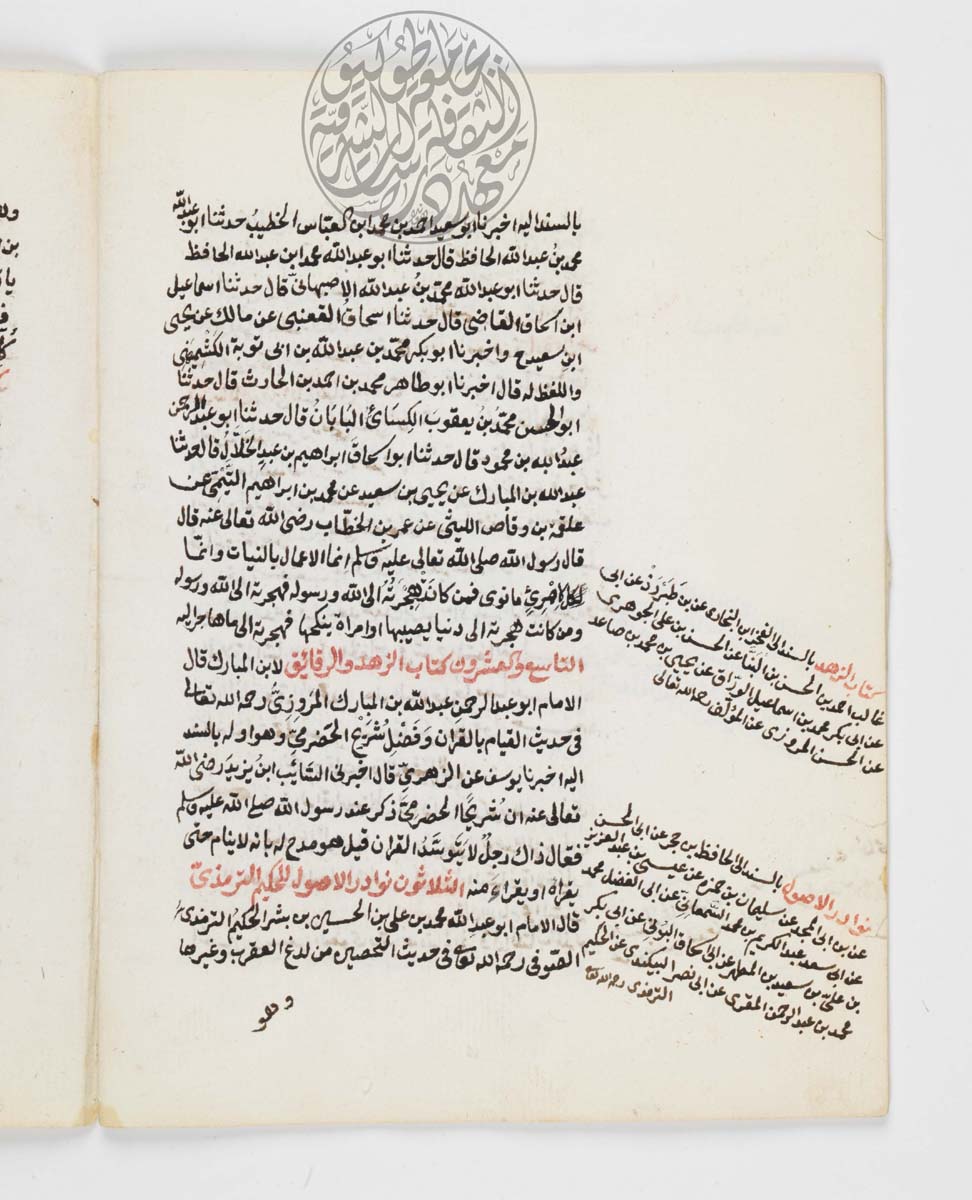 معهد دراسات الثقافة الشرقية بجامعة طوكيو
بالسند اليه اخبرنا ابو سعيد احمد بن محمد ابن العباس الخطيب حدثنا ابو عبد الله
محمد بن عبد الله الحافظ قال حدثنا ابو عبد الله محمد ابن عبد الله الحافظ
قال حدثنا ابو عبد الله محمد بن عبد الله الاصبهاني قال حدثنا اسماعيل
ابن اسحاق القاضي قال حدثنا اسحاق القعنبي عن مالك عن يحيى
ابن سعيد ح واخبرنا ابو بكر محمد بن عبد الله بن ابى توبة الكشميهني
واللفظ له قال اخبرنا ابو طاهر محمد بن احمد بن الحارث قال حدثنا
ابو الحسن محمد بن يعقوب الكسائي البابان قال حدثنا ابو عبد الرحمن
عبد الله بن محمود قال حدثنا ابو اسحاق ابراهيم بن عبد الخلال قال حدثنا
عبد الله بن المبارك عن يحيى بن سعيد عن محمد بن ابراهيم التيمي عن
علقمة بن وقاص الليثي عن عمر بن الخطاب رضى الله تعالى عنه قال
قال رسول الله صلى الله تعالى عليه وسلم انما الاعمال بالنيات وانما
لكل امرئ ما نوى فمن كانت هجرته الى الله ورسوله فهجرته الى الله ورسوله
ومن كانت هجرته الى دنيا يصيبها او امراة ينكحها فهجرته الى ما هاجر اليه
التاسع والعشرون كتاب الزهد والرقائق لابن المبارك قال
الامام ابو عبد الرحمن عبد الله بن المبارك المروزي رحمه الله تعالى
فى حديث القيام بالقران وفضل شريح الحضرمي وهو اوله بالسند
اليه اخبرنا يوسف عن الزهري قال اخبرنى السائب ابن يزيد رضى الله
تعالى عنه ان شريحا الحضرمي ذكر عند رسول الله صلى الله عليه وسلم
فقال ذاك رجل لا يتوسد القران قيل هو مدح له بانه لا ينام حتى
يقراه او يقراء منه الثلاثون نوادر الاصول للحكيم الترمذي
قال الامام ابو عبد الله محمد بن على بن الحسين بن بشر الحكيم الترمذي
الصوفى رحمه الله تعالى فى حديث التحصين من لدغ العقرب وغيرها
وهو
كتاب الزهد بالسند الى الفخر ابن البخارى عن بن طبرزذ عن ابى
غالب احمد بن الحسن بن البنا عن الحسن بن على الجوهرى
عن ابى بكر محمد بن اسماعيل الوراق عن يحيى بن محمد بن صاعد
عن الحسن المروزى عن المؤلف رحمه الله تعالى
نوادر الاصول بالسند الى الحافظ بن حجر عن ابى الحسن
عن بن ابى المجد عن سليمان بن حمزة عن عيسى بن عبد العزيز
عن ابى سعد عبد الكريم بن محمد السمعانى عن ابى الفضل محمد
بن على بن سعيد بن المطهر عن ابى اسحاق عن ابى بكر
محمد بن عبد الرحمن المقرى عن ابى نصر البيكندى عن الحكيم
الترمذى رحمه الله تعالى